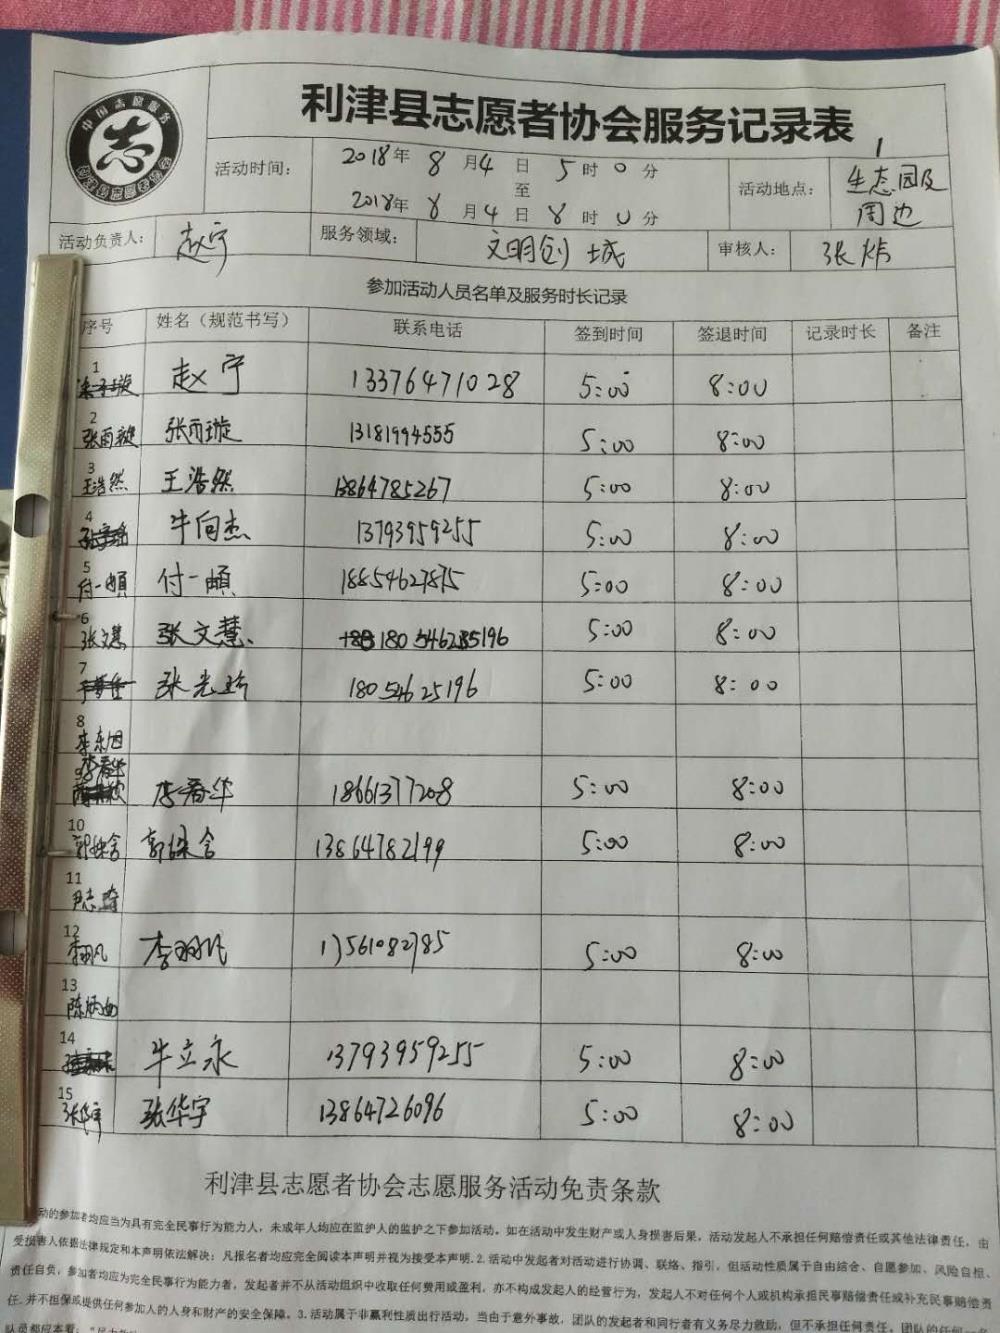 利津县志愿者协会服务记录表
1
中国志愿服务
志
活动时间： 2018年 8月4日 5时0分
至
2018年 8月4日 8时0分
活动地点： 生态园及
周边
活动负责人： 赵宁 服务领域： 文明创城 审核人： 张炜
参加活动人员名单及服务时长记录
序号 姓名（规范书写） 联系电话 签到时间 签退时间 记录时长 备注
1 赵宁 13376471028 5:00 8:00
2 张雨璇 张雨璇 13181994555 5:00 8:00
3 王浩然 王浩然 13864785267 5:00 8:00
4 牛向杰 13793959255 5:00 8:00
5 付一頔 付一頔 18854627875 5:00 8:00
6 张文慧 张文慧 180 5:00 8:00
7 张光玲 18054625196 5:00 8:00
8
李春华 李春华 18661377208 5:00 8:00
10 13864782199 5:00 8:00
11
12 李翔凡 13561082785 5:00 8:00
13 陈炳
14 牛立永 13793959255 5:00 8:00
15 张华宇 张华宇 13864726096 5:00 8:00
利津县志愿者协会志愿服务活动免责条款
动的参加者均应当为具有完全民事行为能力人，未成年人均应在监护人的监护之下参加活动。如在活动中发生财产或人身损害后果，活动发起人不承担任何赔偿责任或其他法律责任，由
受损害人依据法律规定和本声明依法解决；凡报名者均应完全阅读本声明并视为接受本声明.2.活动中发起者对活动进行协调、联络、指引，但活动性质属于自由结合、自愿参加、风险自担、
责任自负，参加者均应为完全民事行为能力者，发起者并不从活动组织中收取任何费用或盈利，亦不构成发起人的经营行为，发起人不对任何个人或机构承担民事赔偿责任或补充民事赔偿责
任.并不担保或提供任何参加人的人身和财产的安全保障。3.活动属于非赢利性质出行活动，当由于意外事故，团队的发起者和同行者有义务尽力救助，但不承担任何责任。团队的任何
队员都应本着：“尽力救助